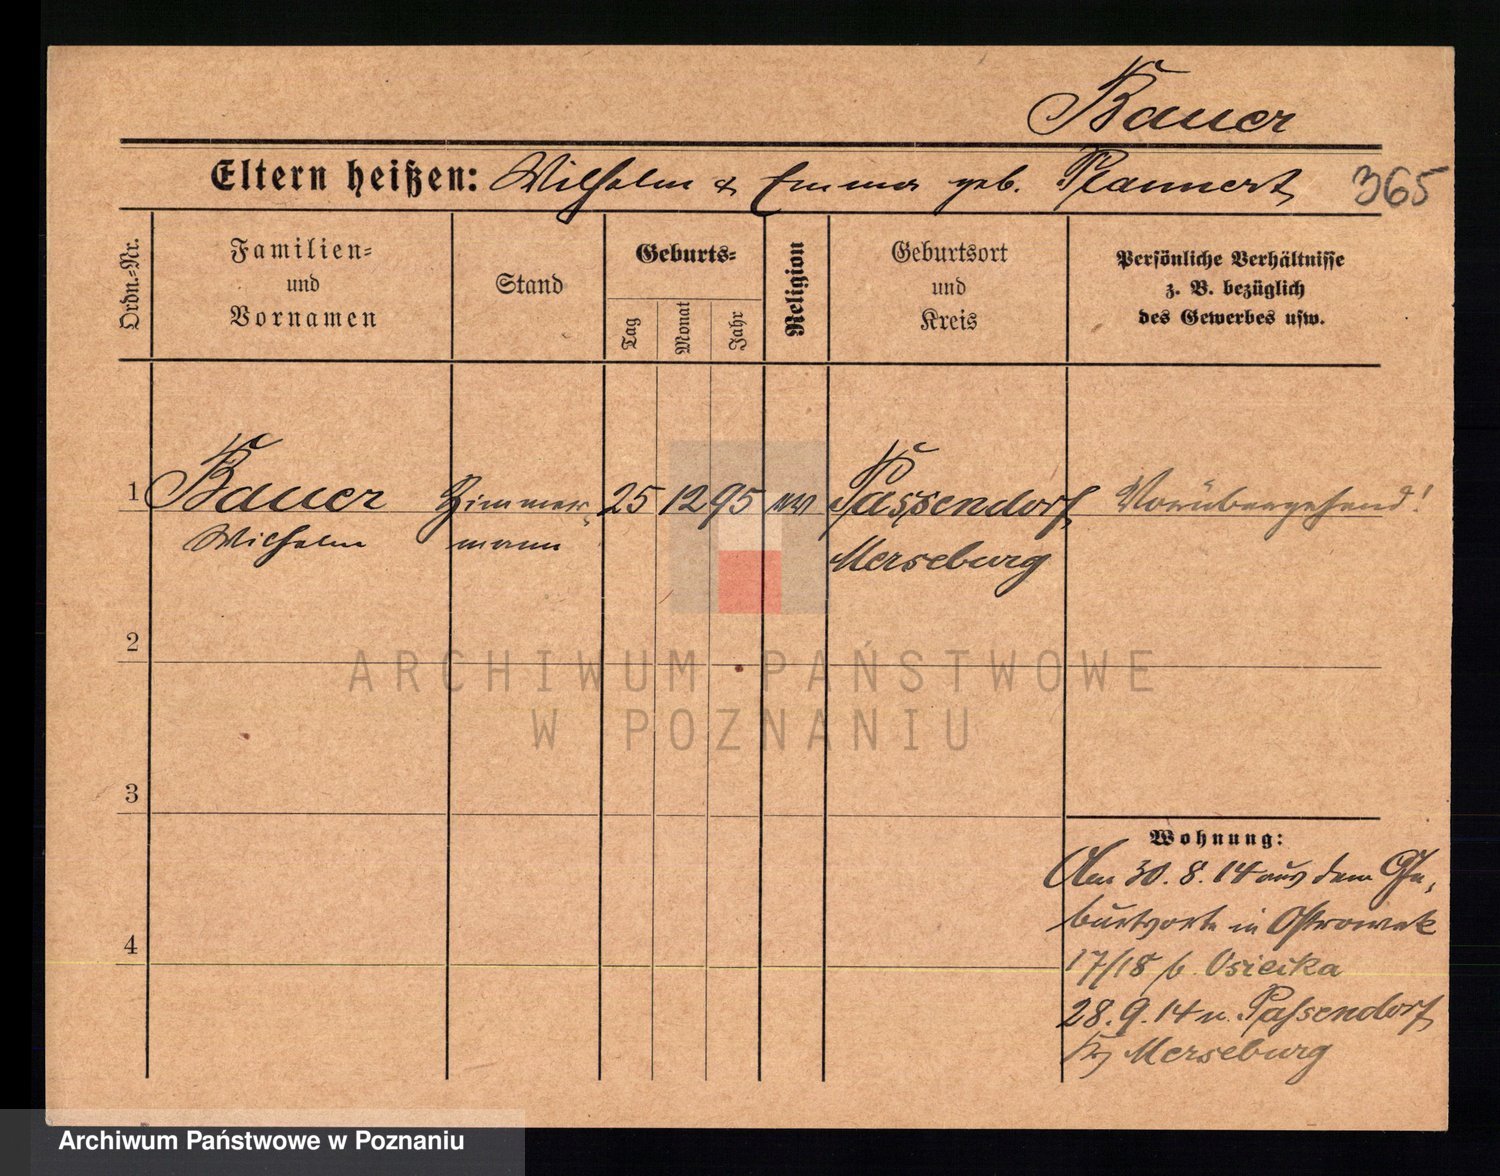 Bauer
Eltern heißen: Wilhelm & Emma geb. Plannert
365
Ordn.-Nr.
Familien-
und
Vornamen
Stand
Geburts-
Tag
Monat
Jahr
Religion
Geburtsort
und
Kreis
Persönliche Verhältnisse
z. B. bezüglich
des Gewerbes usw.
1 Bauer Zimmer- 25 12 95 ev Passendorf Vorübergehend!
Wilhelm mann Merseburg
2
ARCHIWUM PAŃSTWOWE
W POZNANIU
3
Wohnung:
Am 30. 8. 14 aus dem Ge-
burtsorte in Ostrowek
17/18 b. Osiecka
28. 9. 14 n. Passendorf
Kr Merseburg
4
Archiwum Państwowe w Poznaniu